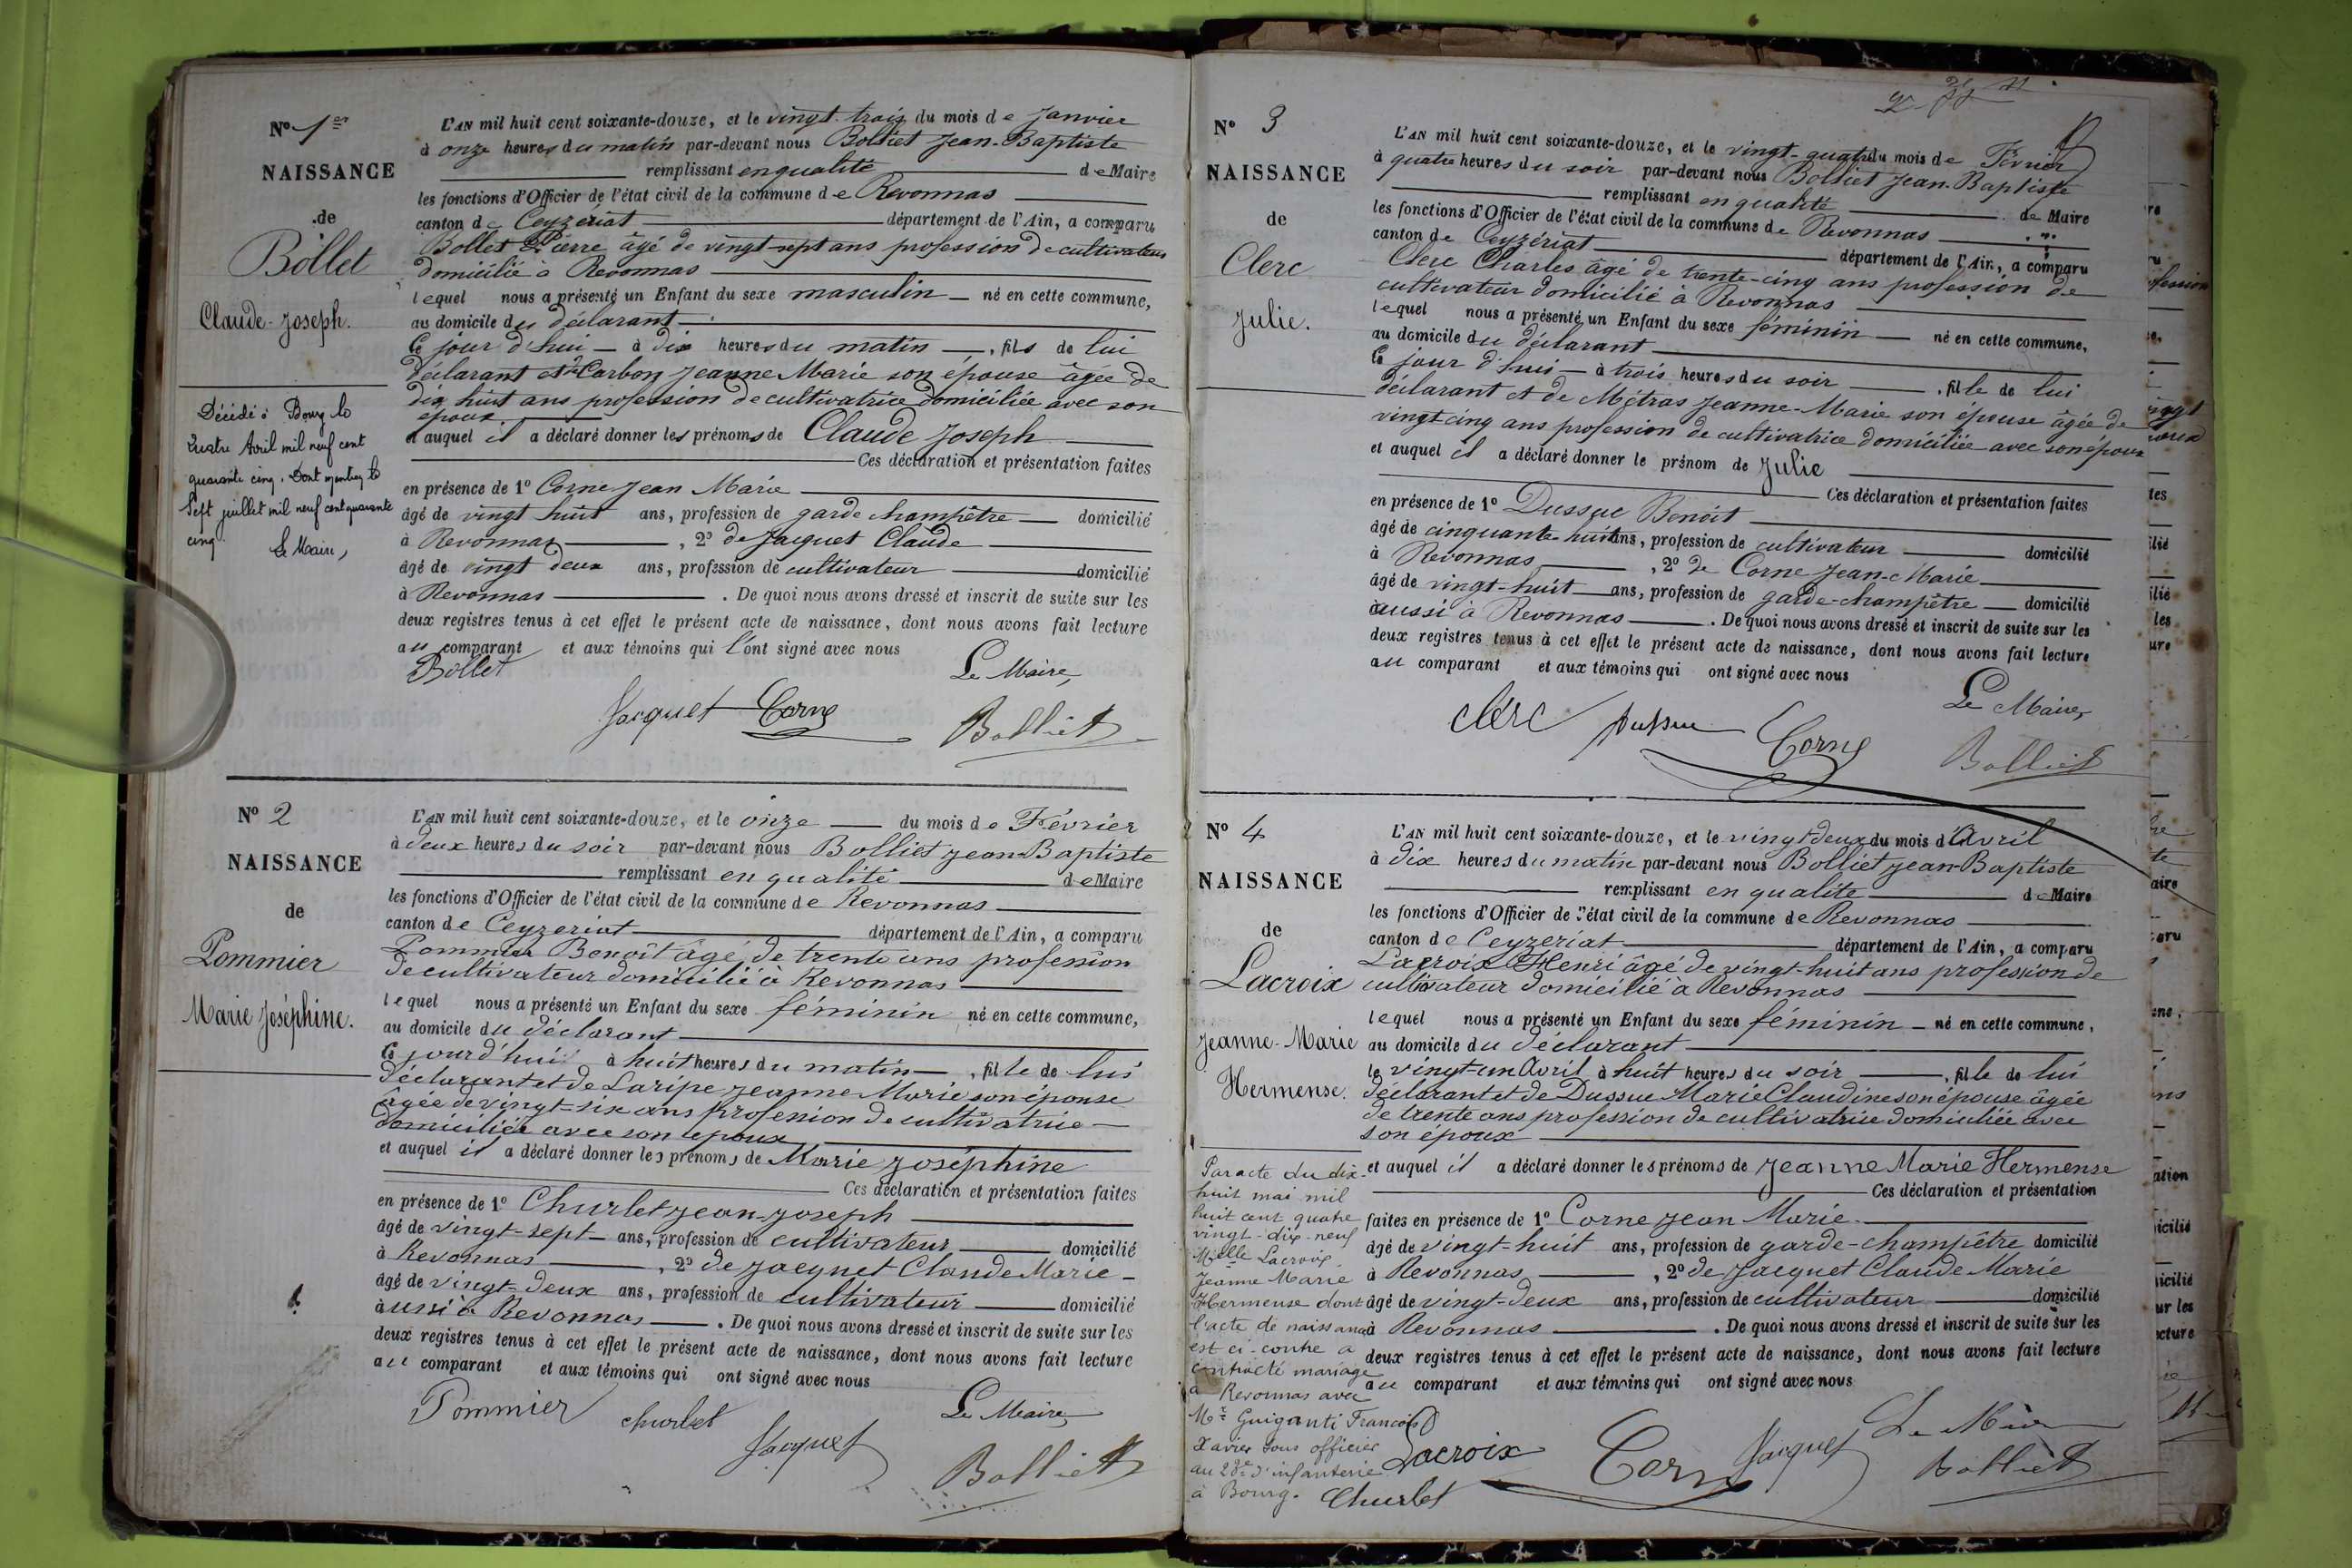 No 1er
NAISSANCE
de
Bollet
Claude-Joseph.
Décédé à Bourg le
quatre Avril mil neuf cent
quarante cinq. Dont mention le
Sept juillet mil neuf cent quarante
cinq.
Le Maire,
L'AN mil huit cent soixante-douze, et le vingt-trois du mois de Janvier
à onze heures du matin par-devant nous Bolliet Jean-Baptiste
remplissant en qualité de Maire
les fonctions d'Officier de l'état civil de la commune de Revonnas
canton de Ceyzériat département de l'Ain, a comparu
Bollet Pierre âgé de vingt-sept ans profession de cultivateur
domicilié à Revonnas
lequel nous a présenté un Enfant du sexe masculin né en cette commune,
au domicile du déclarant
Ce jour d'hui à dix heures du matin, fils de lui
déclarant et de Carbon Jeanne Marie son épouse âgée de
dix huit ans profession de cultivatrice domiciliée avec son
époux
et auquel il a déclaré donner les prénoms de Claude Joseph
Ces déclaration et présentation faites
en présence de 1o Corne Jean Marie
âgé de vingt huit ans, profession de garde champêtre domicilié
à Revonnas, 2o de Jacquet Claude
âgé de vingt deux ans, profession de cultivateur domicilié
à Revonnas. De quoi nous avons dressé et inscrit de suite sur les
deux registres tenus à cet effet le présent acte de naissance, dont nous avons fait lecture
au comparant et aux témoins qui l'ont signé avec nous
Bollet
Le Maire,
Jacquet Corne
Bolliet
No 2
NAISSANCE
de
Pommier
Marie Joséphine.
L'AN mil huit cent soixante-douze, et le onze du mois de Février
à deux heures du soir par-devant nous Bolliet Jean-Baptiste
remplissant en qualité de Maire
les fonctions d'Officier de l'état civil de la commune de Revonnas
canton de Ceyzeriat département de l'Ain, a comparu
Pommier Benoît âgé de trente ans profession
de cultivateur domicilié à Revonnas
lequel nous a présenté un Enfant du sexe féminin né en cette commune,
au domicile du déclarant
Ce jourd'hui à huit heures du matin, fille de lui
déclarant et de Laripe Jeanne Marie son épouse
âgée de vingt-six ans profession de cultivatrice
domiciliée avec son époux
et auquel il a déclaré donner les prénoms de Marie Joséphine
Ces déclaration et présentation faites
en présence de 1o Churlet Jean-Joseph
âgé de vingt-sept ans, profession de cultivateur domicilié
à Revonnas, 2o de Jacquet Claude Marie
âgé de vingt-deux ans, profession de cultivateur domicilié
aussi à Revonnas. De quoi nous avons dressé et inscrit de suite sur les
deux registres tenus à cet effet le présent acte de naissance, dont nous avons fait lecture
au comparant et aux témoins qui ont signé avec nous
Pommier churlet
Le Maire,
Jacquet
Bolliet
No 3
NAISSANCE
de
Clerc
Julie.
L'AN mil huit cent soixante-douze, et le vingt-quatre du mois de Février
à quatre heures du soir par-devant nous Bolliet Jean-Baptiste
remplissant en qualité de Maire
les fonctions d'Officier de l'état civil de la commune de Revonnas
canton de Ceyzériat département de l'Ain, a comparu
Clerc Charles âgé de trente-cinq ans profession de
cultivateur domicilié à Revonnas
lequel nous a présenté un Enfant du sexe féminin né en cette commune,
au domicile du déclarant
Ce jour d'hui à trois heures du soir, fille de lui
déclarant et de Métras Jeanne-Marie son épouse âgée de
vingt cinq ans profession de cultivatrice domiciliée avec son époux
et auquel il a déclaré donner le prénom de Julie
Ces déclaration et présentation faites
en présence de 1o Dussuc Benoit
âgé de cinquante-huit ans, profession de cultivateur domicilié
à Revonnas, 2o de Corne Jean-Marie
âgé de vingt-huit ans, profession de garde-champêtre domicilié
aussi à Revonnas. De quoi nous avons dressé et inscrit de suite sur les
deux registres tenus à cet effet le présent acte de naissance, dont nous avons fait lecture
au comparant et aux témoins qui ont signé avec nous
Le Maire,
clerc Dussuc Corne
Bolliet
No 4
NAISSANCE
de
Lacroix
Jeanne-Marie
Hermense.
L'AN mil huit cent soixante-douze, et le vingt deux du mois d'Avril
à dix heures du matin par-devant nous Bolliet Jean-Baptiste
remplissant en qualité de Maire
les fonctions d'Officier de l'état civil de la commune de Revonnas
canton de Ceyzeriat département de l'Ain, a comparu
Lacroix Henri âgé de vingt-huit ans profession de
cultivateur domicilié à Revonnas
lequel nous a présenté un Enfant du sexe féminin né en cette commune,
au domicile du déclarant
le vingt-un Avril à huit heures du soir, fille de lui
déclarant et de Dussuc Marie Claudine son épouse âgée
de trente ans profession de cultivatrice domiciliée avec
son époux
et auquel il a déclaré donner les prénoms de Jeanne Marie Hermense
Ces déclaration et présentation
faites en présence de 1o Corne Jean Marie
âgé de vingt-huit ans, profession de garde-champêtre domicilié
à Revonnas, 2o de Jacquet Claude Marie
âgé de vingt-deux ans, profession de cultivateur domicilié
à Revonnas. De quoi nous avons dressé et inscrit de suite sur les
deux registres tenus à cet effet le présent acte de naissance, dont nous avons fait lecture
au comparant et aux témoins qui ont signé avec nous
Par acte du dix-
huit mai mil
huit cent quatre
vingt-dix-neuf
Melle Lacroix
Jeanne Marie
Hermense dont
l'acte de naissance
est ci-contre a
contracté mariage
à Revonnas avec
Mr Guiganti François
Xavier sous officier
au 23e d'infanterie
à Bourg.
Lacroix Corne Jacquet Le Maire
Churlet
Bolliet